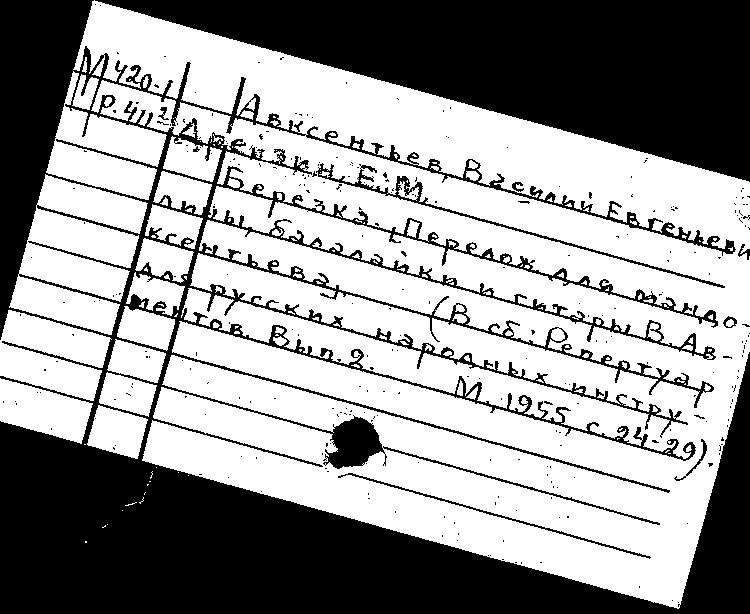 М 420-1
р. 411²
Авксентьев, Василий Евгеньеви
Дрейзин, Е.М.
Березка. [Перелож. для мандо-
лины, балалайки и гитары В. Ав-
ксентьева].
(В сб.: Репертуар
для русских народных инстру-
ментов. Вып. 2.
М., 1955, с. 24-29).